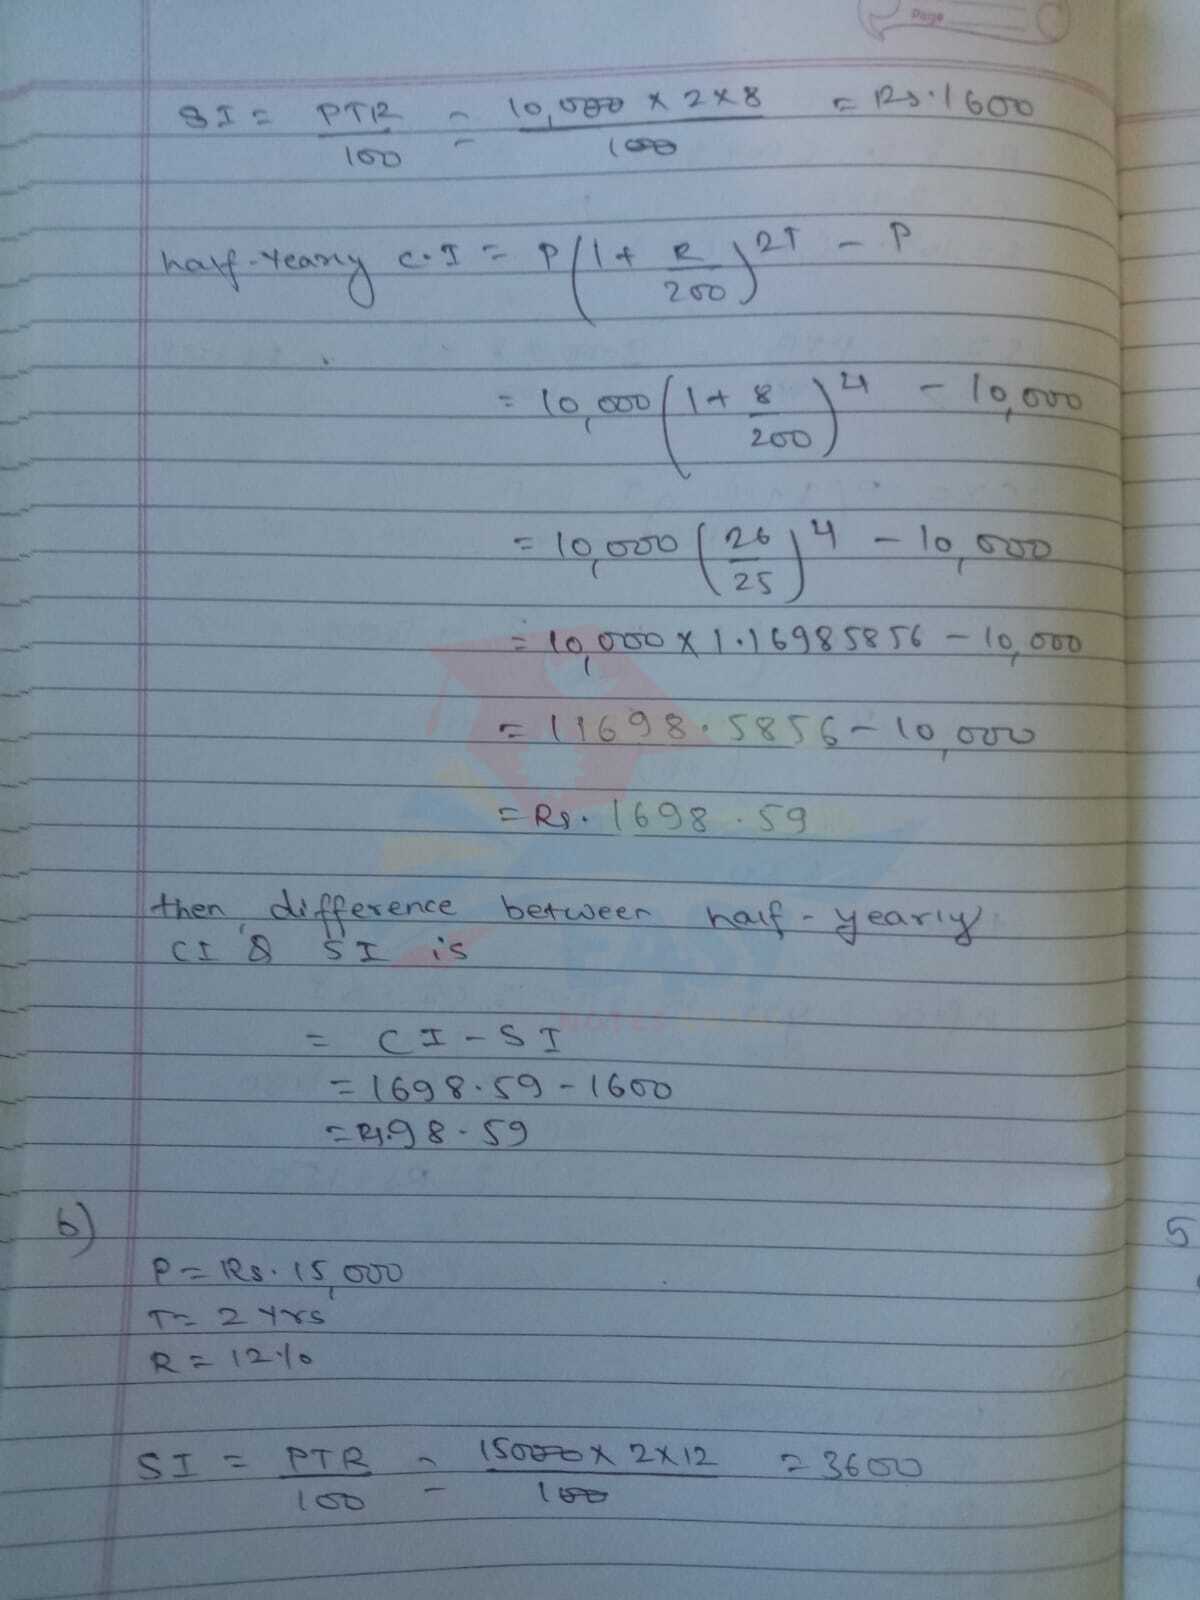 Page
SI = PTR/100 = 10,000 × 2 × 8/100 = Rs. 1600
half-yearly C.I = P(1 + R/200)^2T - P
= 10,000(1 + 8/200)^4 - 10,000
= 10,000(26/25)^4 - 10,000
= 10,000 × 1.16985856 - 10,000
= 11698.5856 - 10,000
= Rs. 1698.59
then, difference between half-yearly
CI & SI is
= CI - SI
= 1698.59 - 1600
= Rs. 98.59
b)
P = Rs. 15,000
T = 2 yrs
R = 12%
SI = PTR/100 = 15000 × 2 × 12/100 = 3600
5